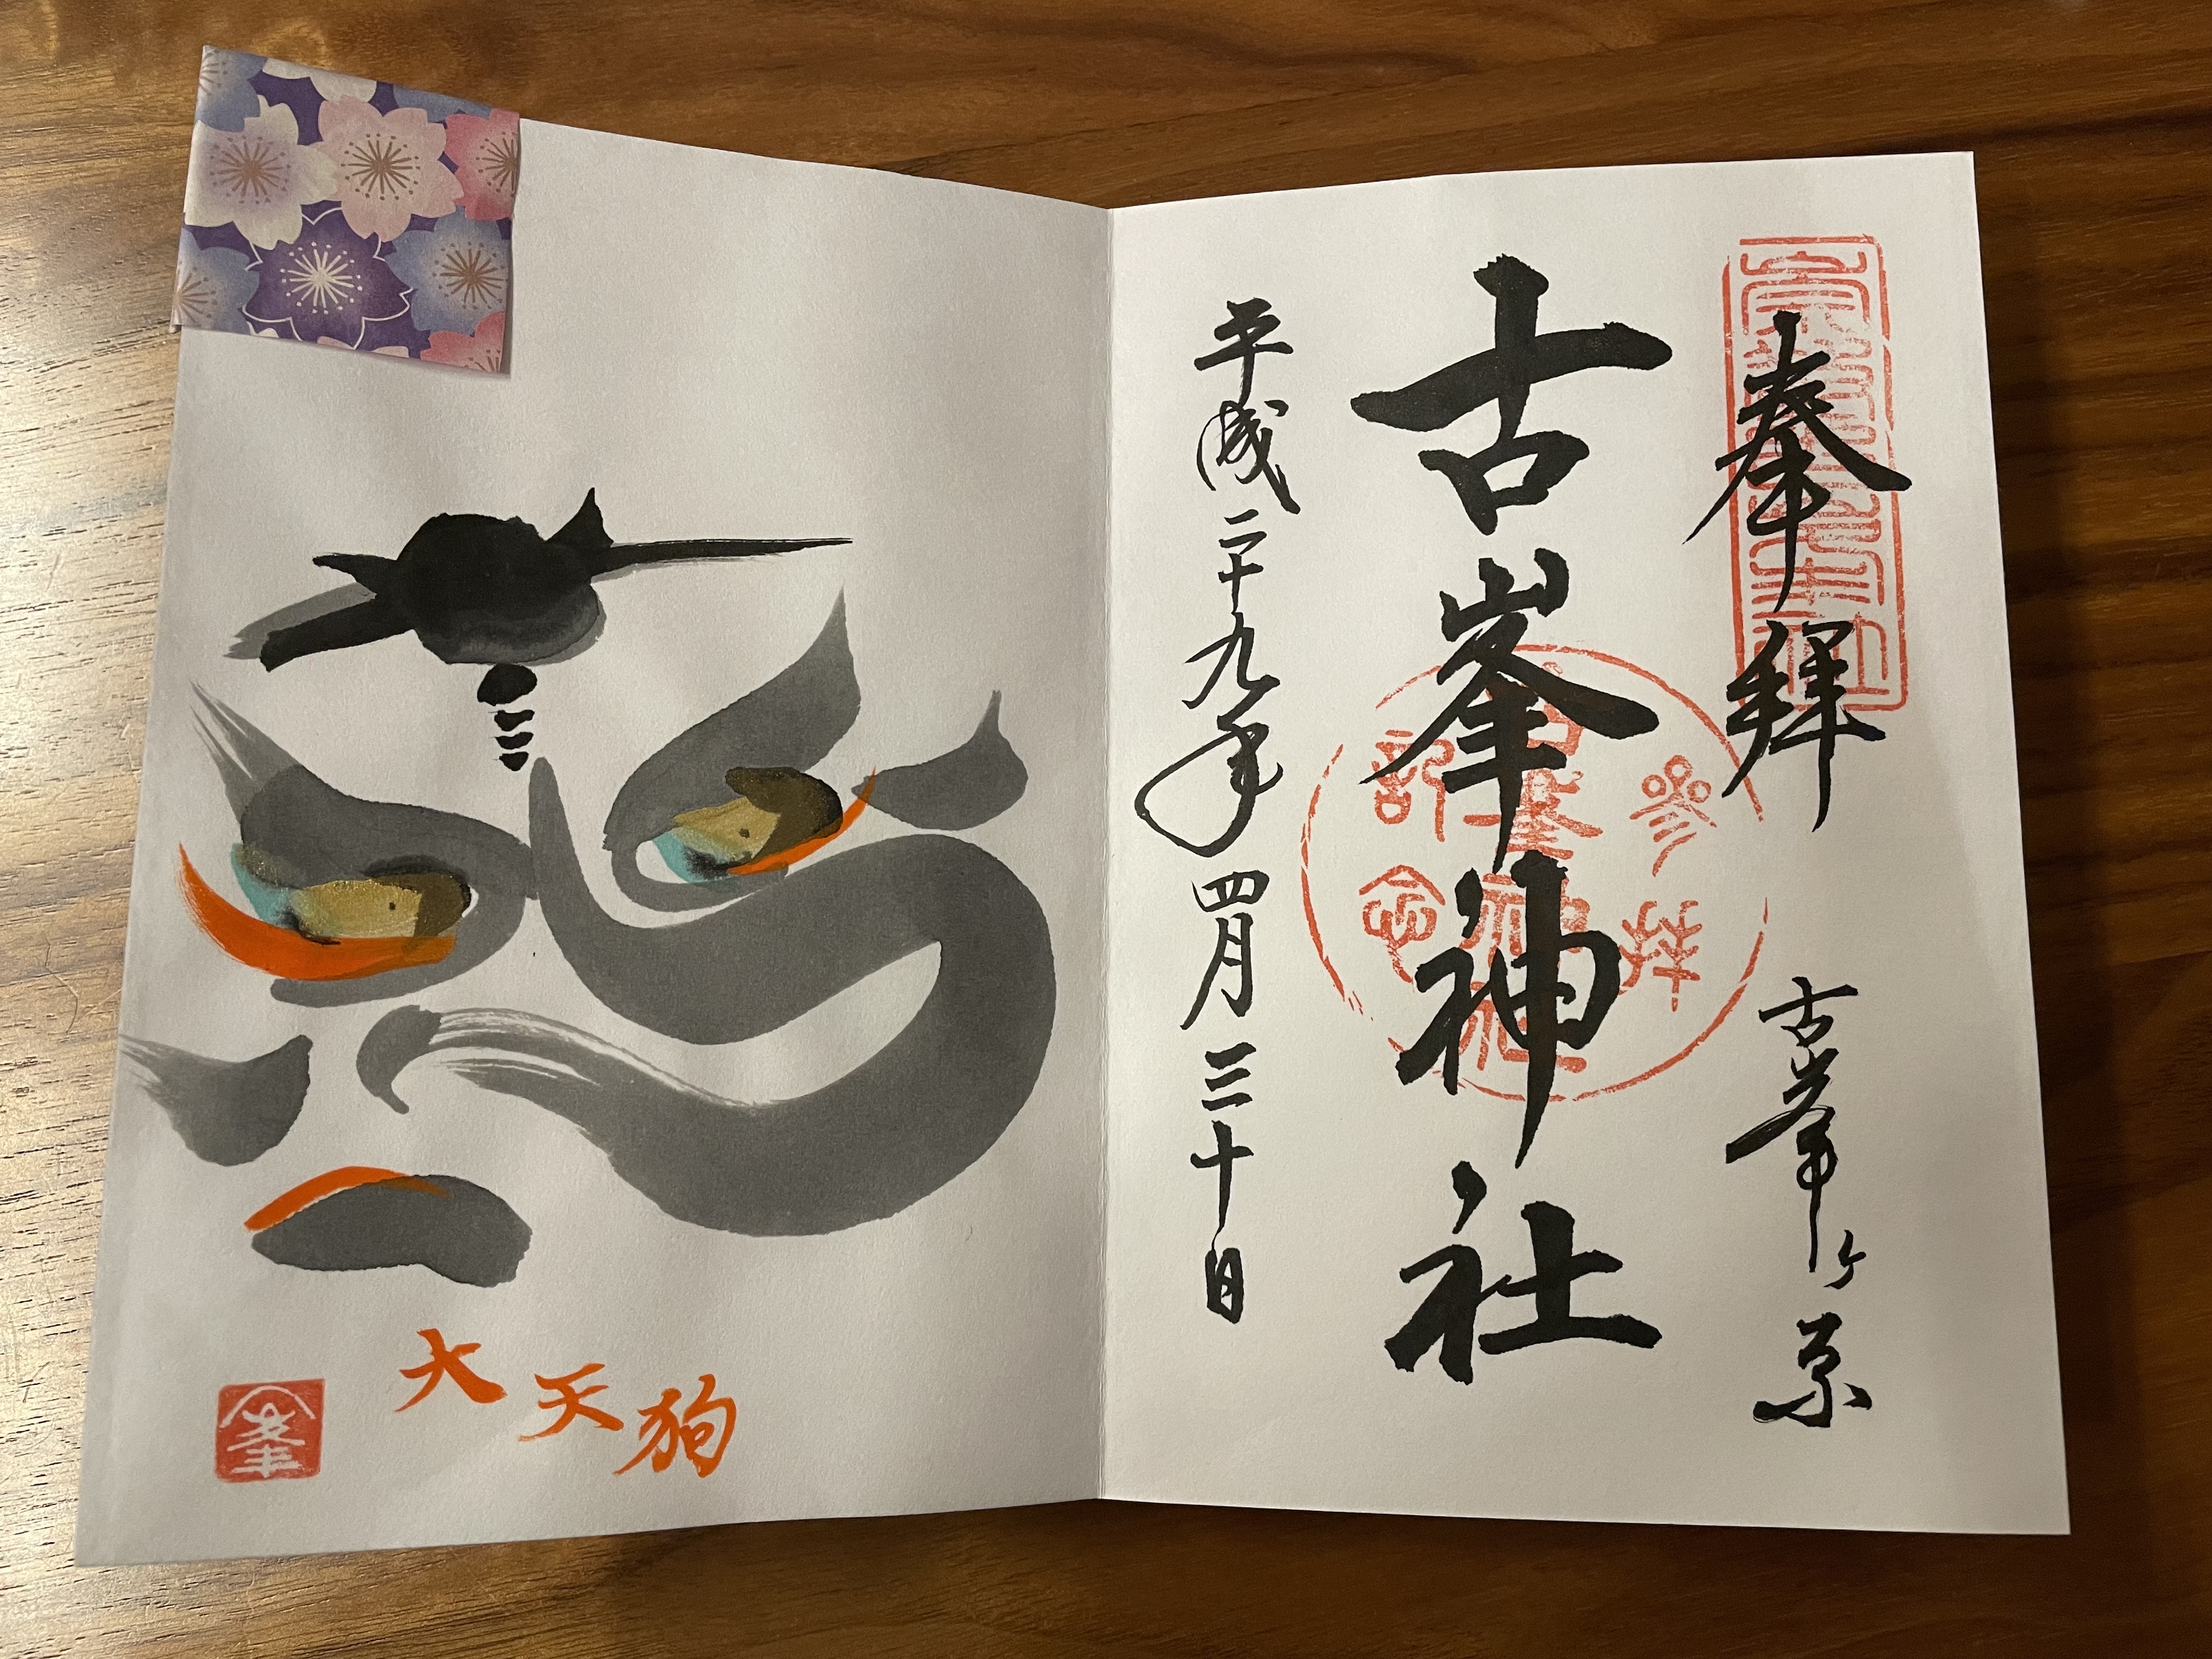 奉拝
古峯ヶ原
古峯神社
参拝
古峯神社
記念
平成二十九年四月三十日
大天狗
峯